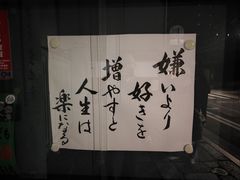 嫌いより
好きを
増やすと
人生は
楽になる